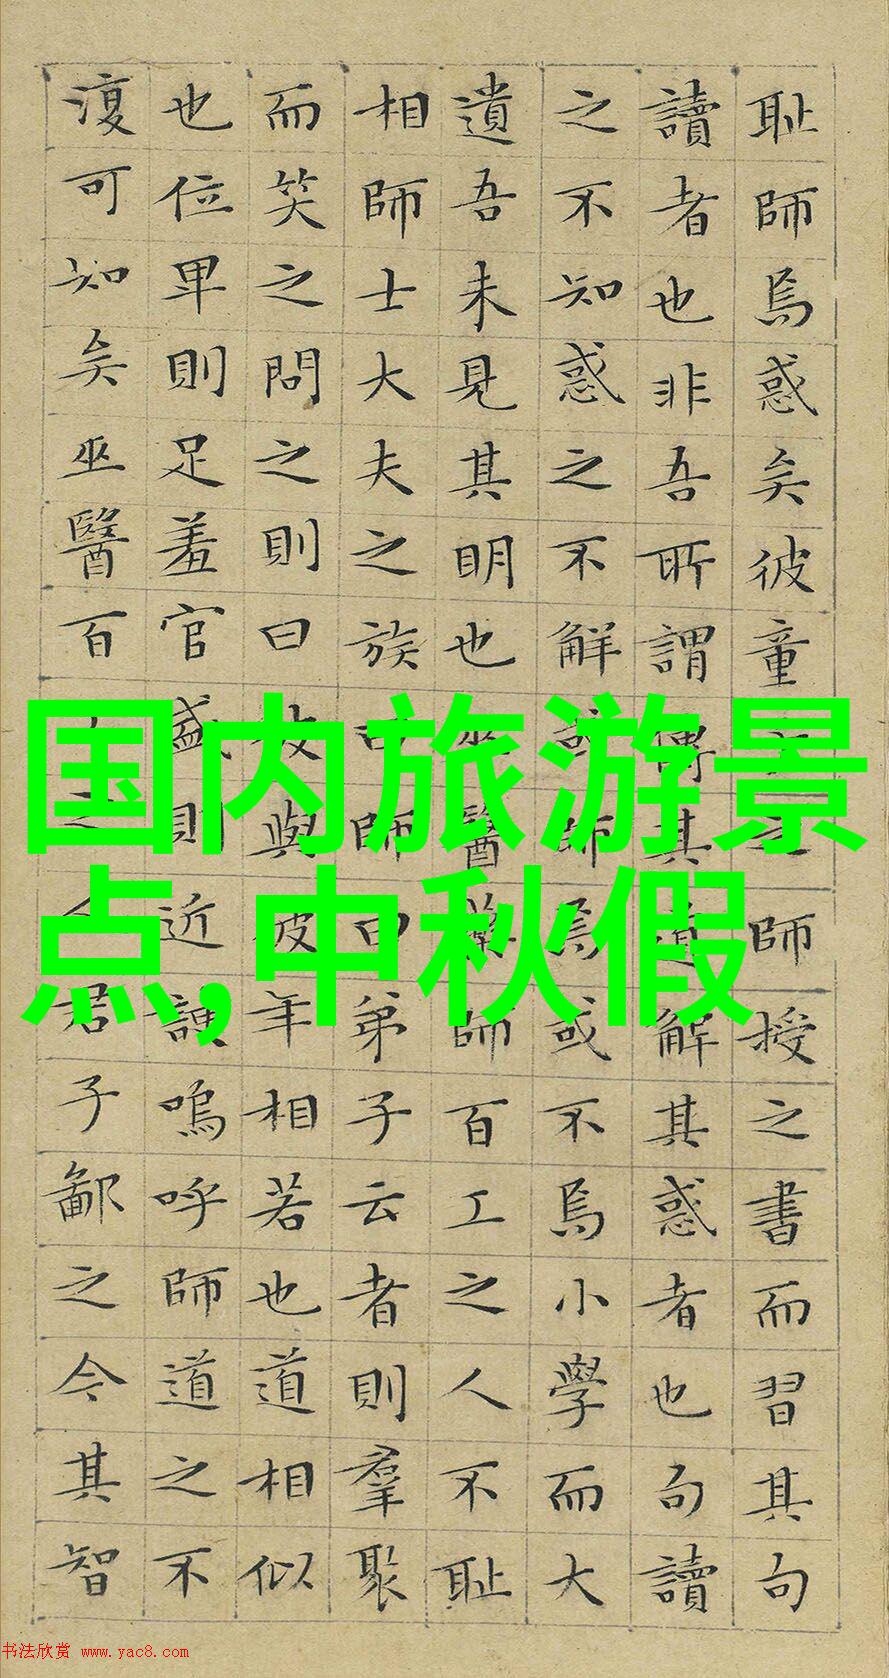 耻師焉惑矣彼童子之師授之書而習其句
讀者也非吾所謂傳其道解其惑者也句讀
之不知惑之不解或師焉或不焉小學而大
遺吾未見其明也巫醫藥師百工之人不耻
相師士大夫之族曰師曰弟子云者則羣聚
而笑之問之則曰彼與彼年相若也道相似
也位卑則足羞官盛則近諛嗚呼師道之不
復可知矣巫醫百工之人君子鄙之今其智
国内旅游景
点,中秋假
书法欣赏 www.yac8.com